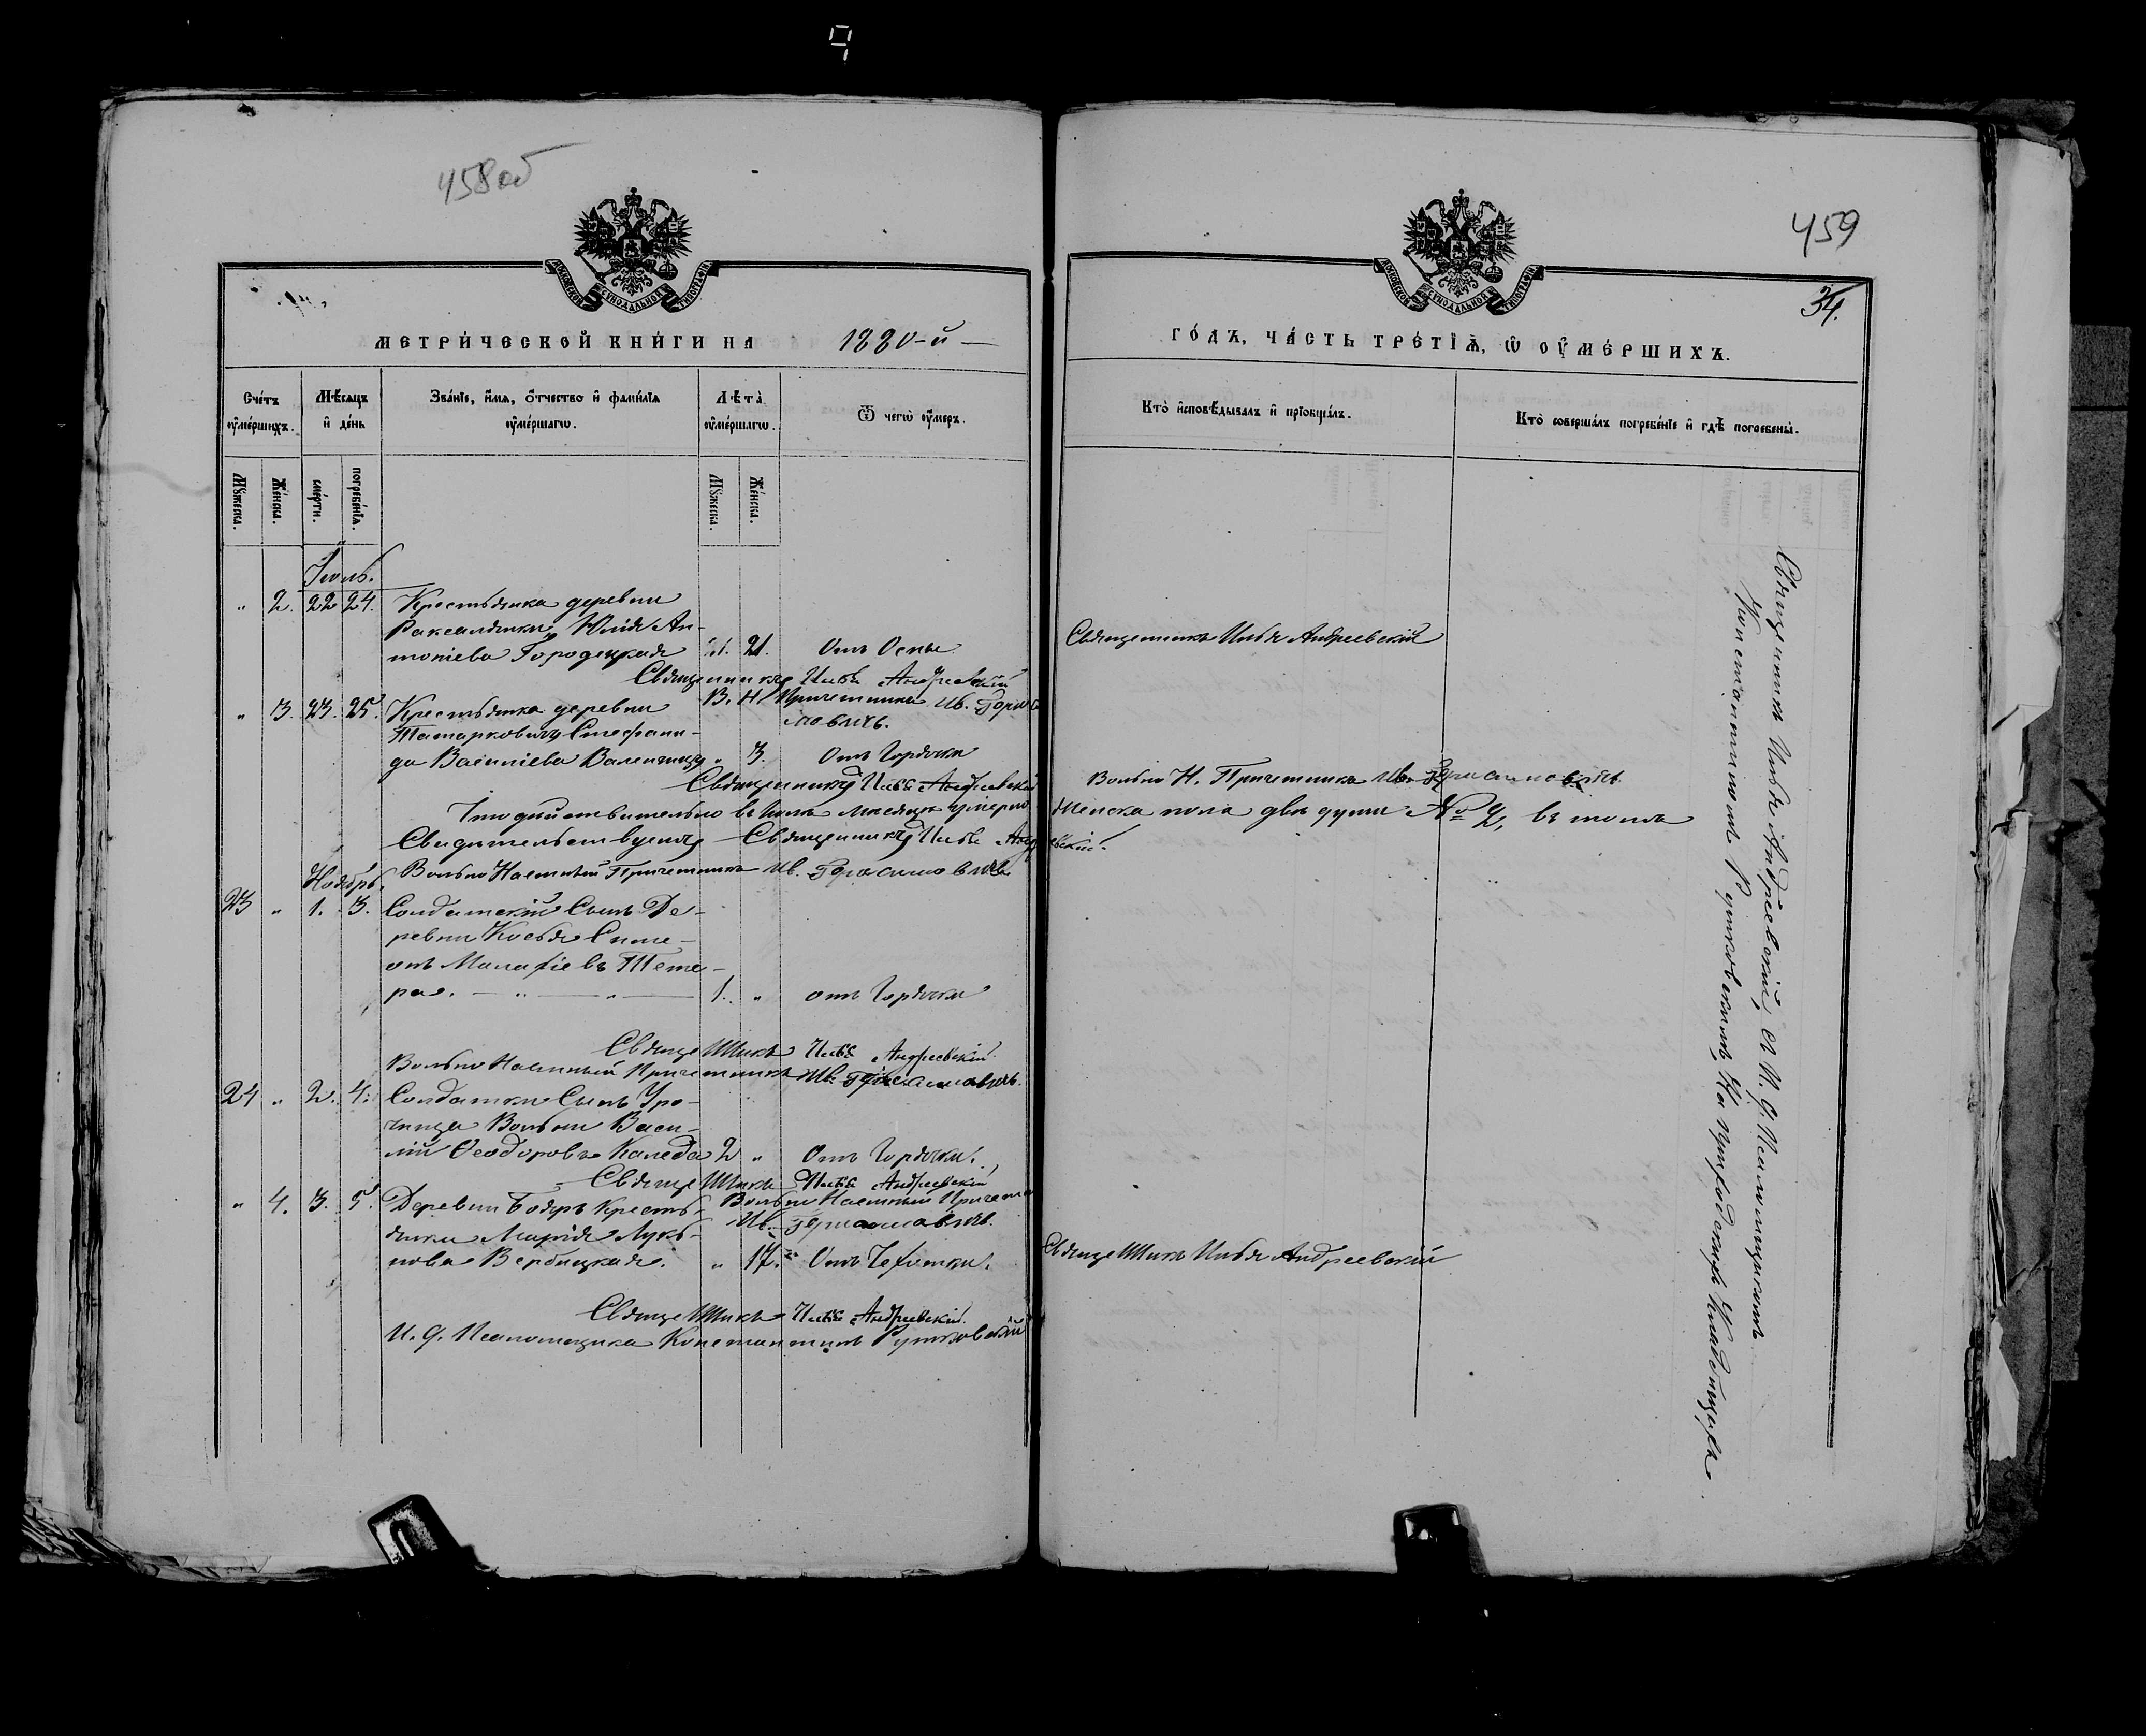 458 об
459
34.
МОСКОВСКОЙ СѴНОДАЛЬНОЙ ТИПОГРАФІИ
МОСКОВСКОЙ СѴНОДАЛЬНОЙ ТИПОГРАФІИ
МЕТРИ́ЧЕСКОЙ КНИ́ГИ НА 1880-й —
ГО́ДЪ, ЧА́СТЬ ТРЕ́ТІѦ, Ѡ ОУМЕ́РШИХЪ.
Сче́тъ оуме́ршихъ.
Мѣ́сѧцъ и де́нь
Зва́нїе, и́мѧ, о́тчество и фами́лїѧ оуме́ршагѡ.
Лѣ̀та оуме́ршагѡ.
Ѿ чегѡ̀ оу́меръ.
Кто̀ и҆сповѣ́дывалъ и҆ прїобща́лъ.
Кто̀ соверша́лъ погребе́нїе и҆ гдѣ̀ погребены̀.
Мꙋ́жеска.
Же́нска.
сме́рти.
погребе́нїѧ.
Мꙋ́жеска.
Же́нска.
Іюль.
" 2. 22 24. Крестьянка деревни
Раксалянки Юлія Ан-
тоніева Городецкая 21. Отъ Оспы Священникъ Илья Андреевскій
Священникъ Илья Андреевскій
В. Н. Причетникъ Ив. Гераси-
мовичъ.
" 3. 23. 25. Крестьянка деревни
Татарковичъ Стефани-
да Валенчицъ " 3. Отъ Горячки
Священникъ Илья Андреевскій Вольно Н. Причетникъ Ив. Герасимовичъ
Что дѣйствительно въ Іюлѣ мѣсяцѣ умерло Женска пола двѣ души № 2, въ томъ
Свидѣтельствуемъ Священникъ Илья Андреевскій.
Вольно Наемный Причетникъ Ив. Герасимовичъ
Ноябрь.
23 " 1. 3. Солдатскій Сынъ Де-
ревни Косья Симе-
онъ Малафіевъ Тете-
ря. — " — " — 1. " отъ Горячки
Священникъ Илья Андреевскій.
Вольно Наемный Причетникъ Ив. Герасимовичъ.
24 " 2. 4. Солдатки Сынъ Уро-
чища Вольни Васи-
лій Ѳеодоровъ Каледа 2 " Отъ Горячки.
Священникъ Илья Андреевскій
Вольно Наемный Причетни
Ив. Герасимовичъ.
" 4. 3. 5. Деревни Бояръ Кресть-
янка Марія Лукья-
нова Вербицкая. " 17. Отъ Чехотки. Священникъ Илья Андреевскій
Священникъ Илья Андреевскій.
И. д. Псаломщика Константинъ Рутковскій
Священникъ Илья Андреевскій, съ И. д. Псаломщикомъ
Константиномъ Рутковскимъ, На приходскихъ Кладбищахъ